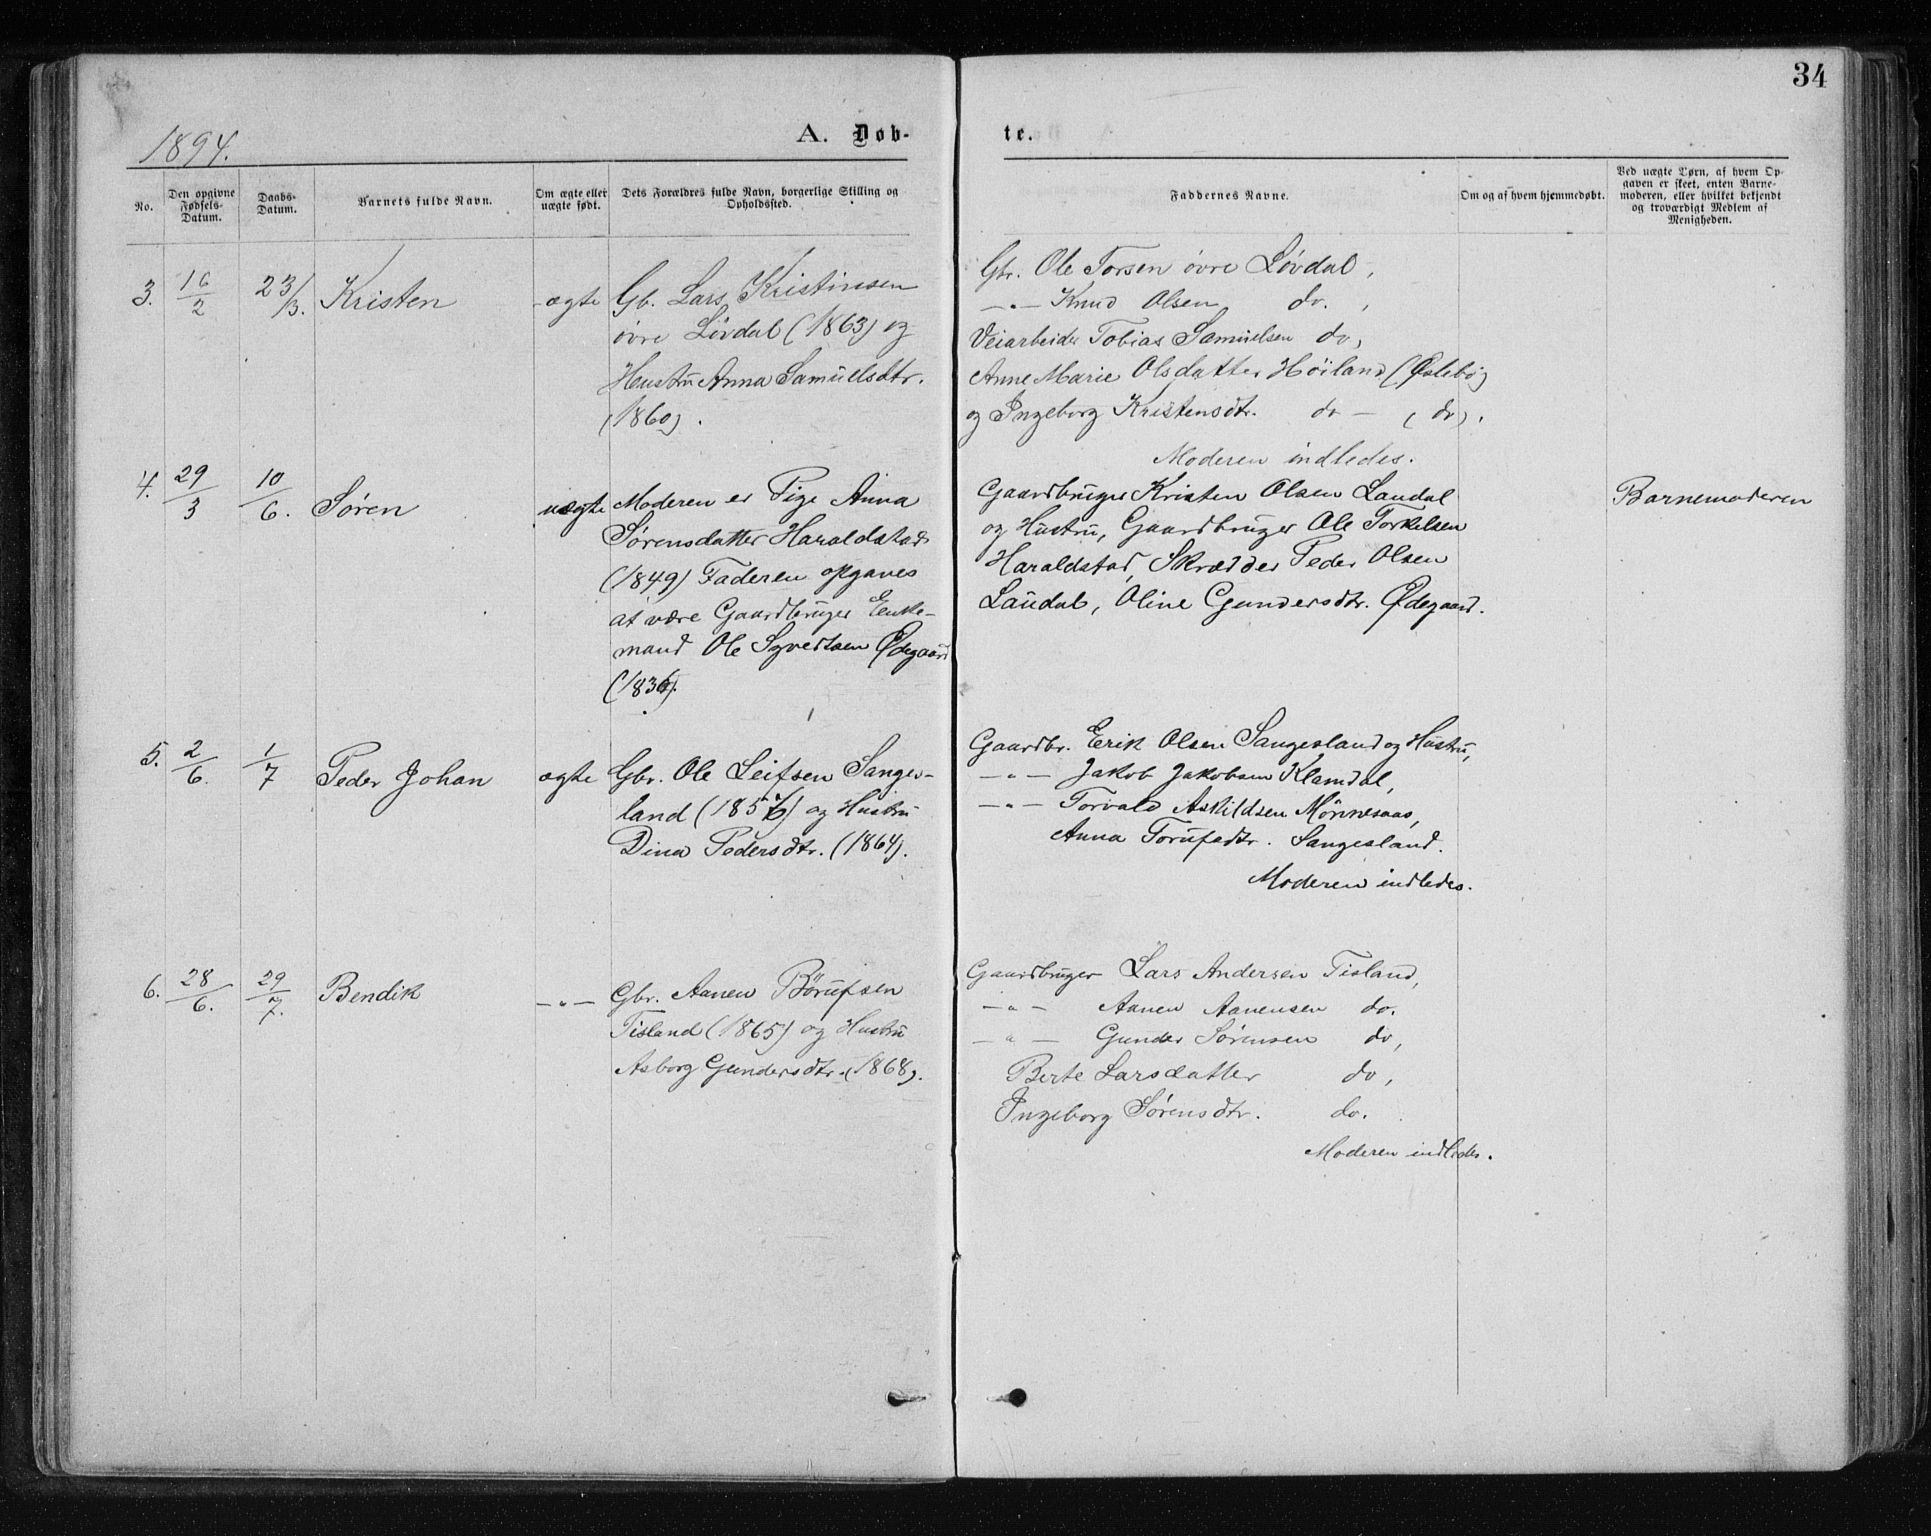 34
1894.
A. Døb-
te.
No.
Den opgivne Fødsels-Datum.
Daabs-Datum.
Barnets fulde Navn.
Om ægte eller uægte født.
Dets Forældres fulde Navn, borgerlige Stilling og Opholdssted.
Faddernes Navne.
Om og af hvem hjemmedøbt.
Ved uægte Børn, af hvem Op-
gaven er skeet, enten Barne-
moderen, eller hvilket bekjendt
og troværdigt Medlem af
Menigheden.
3. 16/2 23/3. Kristen ægte Gb. Lars Kristinsen
øvre Løvdal (1863) og
Hustru Anna Samuelsdtr.
(1860).
Gbr. Ole Torsen øvre Løvdal,
—"— Knud Olsen do.,
Veiarbeider Tobias Samuelsen do,
Anne Marie Olsdatter Høiland (Øslebø)
og Ingeborg Kristensdtr. do — (do).
Moderen indledes.
4. 29/3 10/6. Søren uægte Moderen er Pige Anna
Sørensdatter Haraldstad
(1849) Faderen opgaves
at være Gaardbruger Enke-
mand Ole Syvertsen Ødegaard
(1836).
Gaardbruger Kristen Olsen Laudal
og Hustru, Gaardbruger Ole Torkelsen
Haraldstad, Skrædder Peder Olsen
Laudal, Oline Gundersdtr. Ødegaard.
Barnemoderen
5. 2/6. 1/7 Peder Johan ægte Gbr. Ole Leifsen Sanges-
land (1857) og Hustru
Dina Pedersdtr. (1864).
Gaardbr. Erik Olsen Sangesland og Hustru,
—"— Jakob Jakobsen Klemdal,
—"— Torvald Askildsen Mønnesaas,
Anna Torufsdtr. Sangesland.
Moderen indledes.
6. 28/6. 29/7. Bendik —"— Gbr. Aanen Børufsen
Tisland (1865) og Hustru
Asborg Gundersdtr. (1868).
Gaardbruger Lars Andersen Tisland,
—"— Aanen Aanensen do.
—"— Gunder Sørensen do,
Berte Larsdatter do,
Ingeborg Sørensdtr. do.
Moderen indledes.